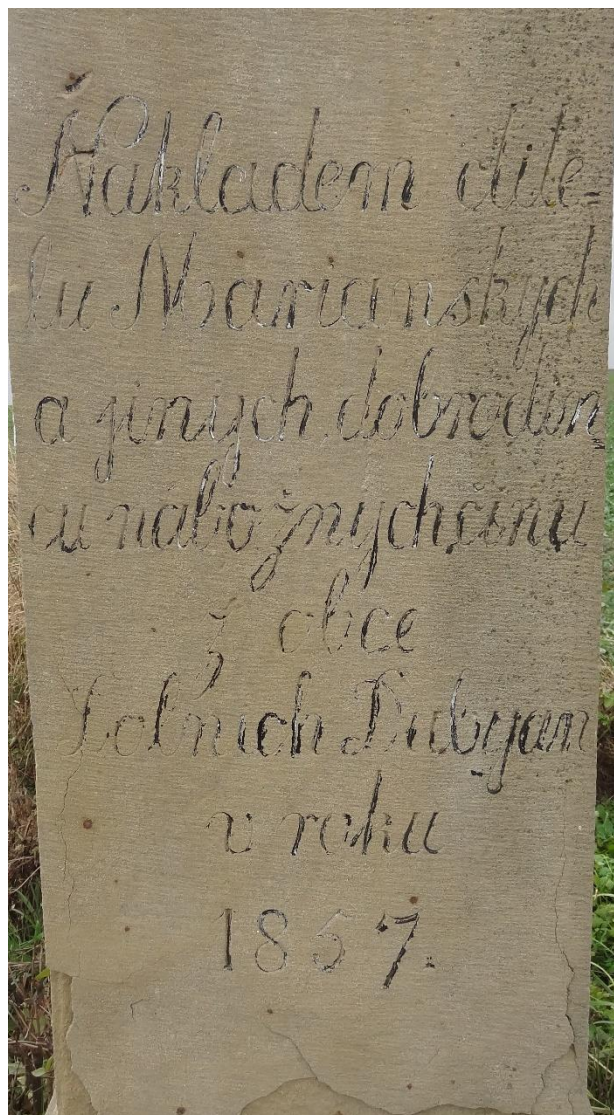 Nakladem dite-
lu Marianskych
a jinych dobrodin
cu nábožnych činu
z obce
Dolnich Dubnan
v roku
1857.